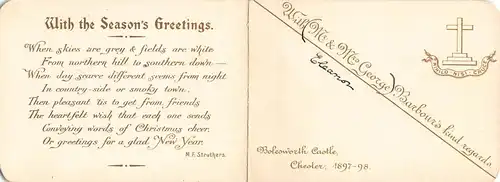 With the Season's Greetings.
When skies are grey & fields are white
From northern hill to southern down—
When day scarce different seems from night
In country-side or smoky town,
Then pleasant 'tis to get from friends
The heartfelt wish that each one sends
Conveying words of Christmas cheer,
Or greetings for a glad New Year.
M.F. Struthers.
With (Mr & Mrs George) Barbour's kind regards.
Eleanor
NIHIL NISI CRUCE
Bolesworth Castle,
Chester, 1897-98.